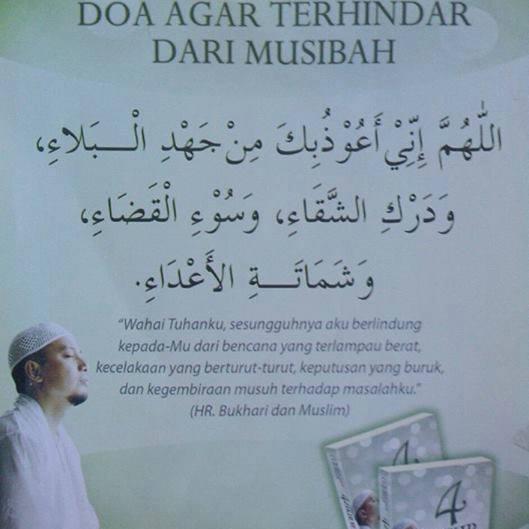 DOA AGAR TERHINDAR
DARI MUSIBAH
اَللّٰهُمَّ إِنِّيْ أَعُوْذُبِكَ مِنْ جَهْدِ الْبَلَاءِ،
وَدَرْكِ الشَّقَاءِ، وَسُوْءِ الْقَضَاءِ،
وَشَمَاتَةِ الأَعْدَاءِ.
"Wahai Tuhanku, sesungguhnya aku berlindung
kepada-Mu dari bencana yang terlampau berat,
kecelakaan yang berturut-turut, keputusan yang buruk,
dan kegembiraan musuh terhadap masalahku."
(HR. Bukhari dan Muslim)
4
4